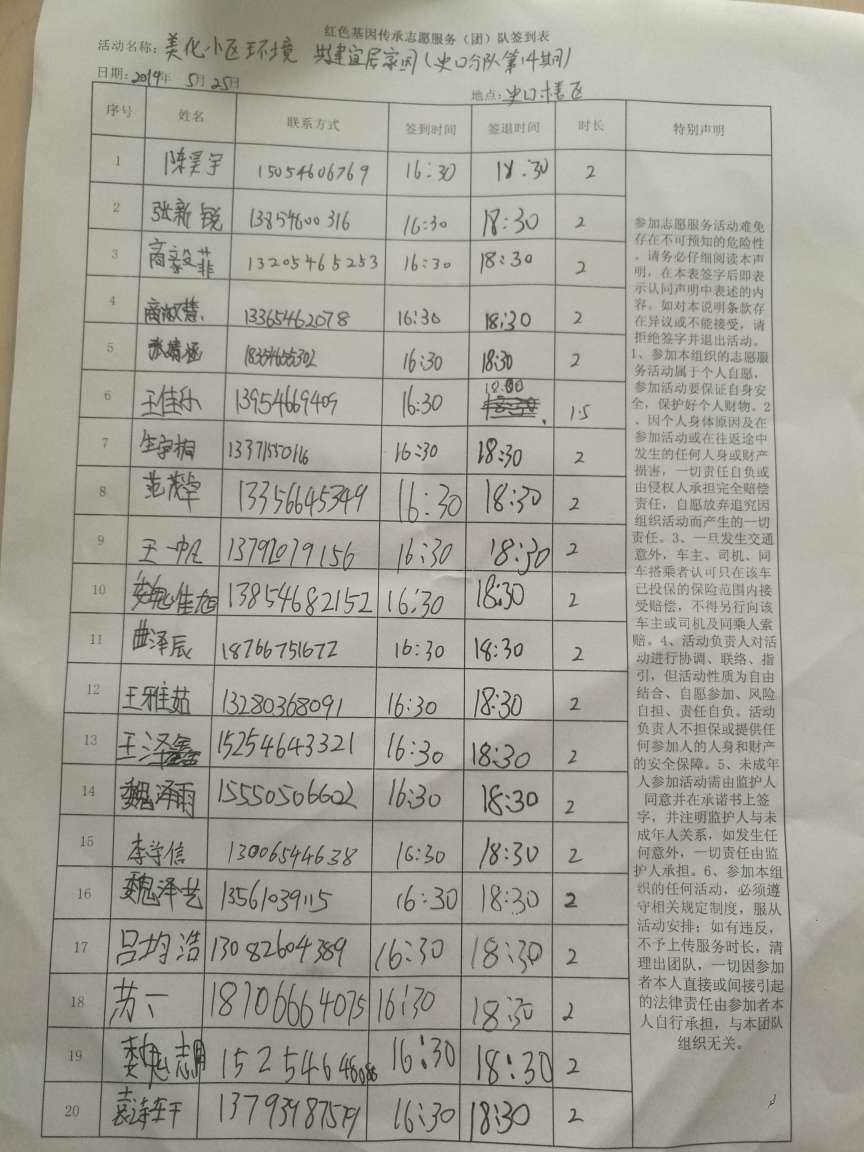 红色基因传承志愿服务（团）队签到表
活动名称：美化小区环境 共建宜居家园（史口分队第14期）
日期：2019年 5月25日 地点：史口社区
序号 姓名 联系方式 签到时间 签退时间 时长 特别声明
1 陈昊宇 15054606769 16:30 18:30 2
2 张新锐 13854600316 16:30 18:30 2
3 商家菲 13205465253 16:30 18:30 2
4 13365462078 16:30 18:30 2
5 16:30 18:30 2
6 王佳乐 13954669409 16:30 18:00 1.5
7 13371550116 16:30 18:30 2
8 13356645349 16:30 18:30 2
9 王一帆 13792079156 16:30 18:30 2
10 魏佳旭 13854682152 16:30 18:30 2
11 曲泽辰 18766751672 16:30 18:30 2
12 王雅茹 13280368091 16:30 18:30 2
13 王泽鑫 15254643321 16:30 18:30 2
14 魏泽雨 15550506602 16:30 18:30 2
15 李学信 13006544638 16:30 18:30 2
16 魏泽艺 13561039115 16:30 18:30 2
17 吕均浩 13082604389 16:30 18:30 2
18 苏六 18706664075 16:30 18:30 2
19 魏志 16:30 18:30 2
20 16:30 18:30 2
参加志愿服务活动难免
存在不可预知的危险性
，请务必仔细阅读本声
明，在本表签字后即表
示认同声明中表述的内
容。如对本说明条款存
在异议或不能接受，请
拒绝签字并退出活动。
1、参加本组织的志愿服
务活动属于个人自愿，
参加活动要保证自身安
全，保护好个人财物。2
、因个人身体原因及在
参加活动或在往返途中
发生的任何人身或财产
损害，一切责任自负或
由侵权人承担完全赔偿
责任，自愿放弃追究因
组织活动而产生的一切
责任。3、一旦发生交通
意外，车主、司机、同
车搭乘者认可只在该车
已投保的保险范围内接
受赔偿，不得另行向该
车主或司机及同乘人索
赔。4、活动负责人对活
动进行协调、联络、指
引，但活动性质为自由
结合、自愿参加、风险
自担、责任自负。活动
负责人不担保或提供任
何参加人的人身和财产
的安全保障。5、未成年
人参加活动需由监护人
同意并在承诺书上签
字，并注明监护人与未
成年人关系，如发生任
何意外，一切责任由监
护人承担。6、参加本组
织的任何活动，必须遵
守相关规定制度，服从
活动安排；如有违反，
不予上传服务时长，清
理出团队，一切因参加
者本人直接或间接引起
的法律责任由参加者本
人自行承担，与本团队
组织无关。